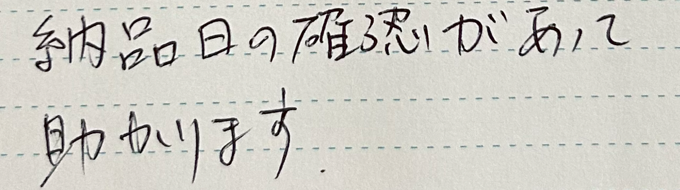 納品日の確認があって
助かります.